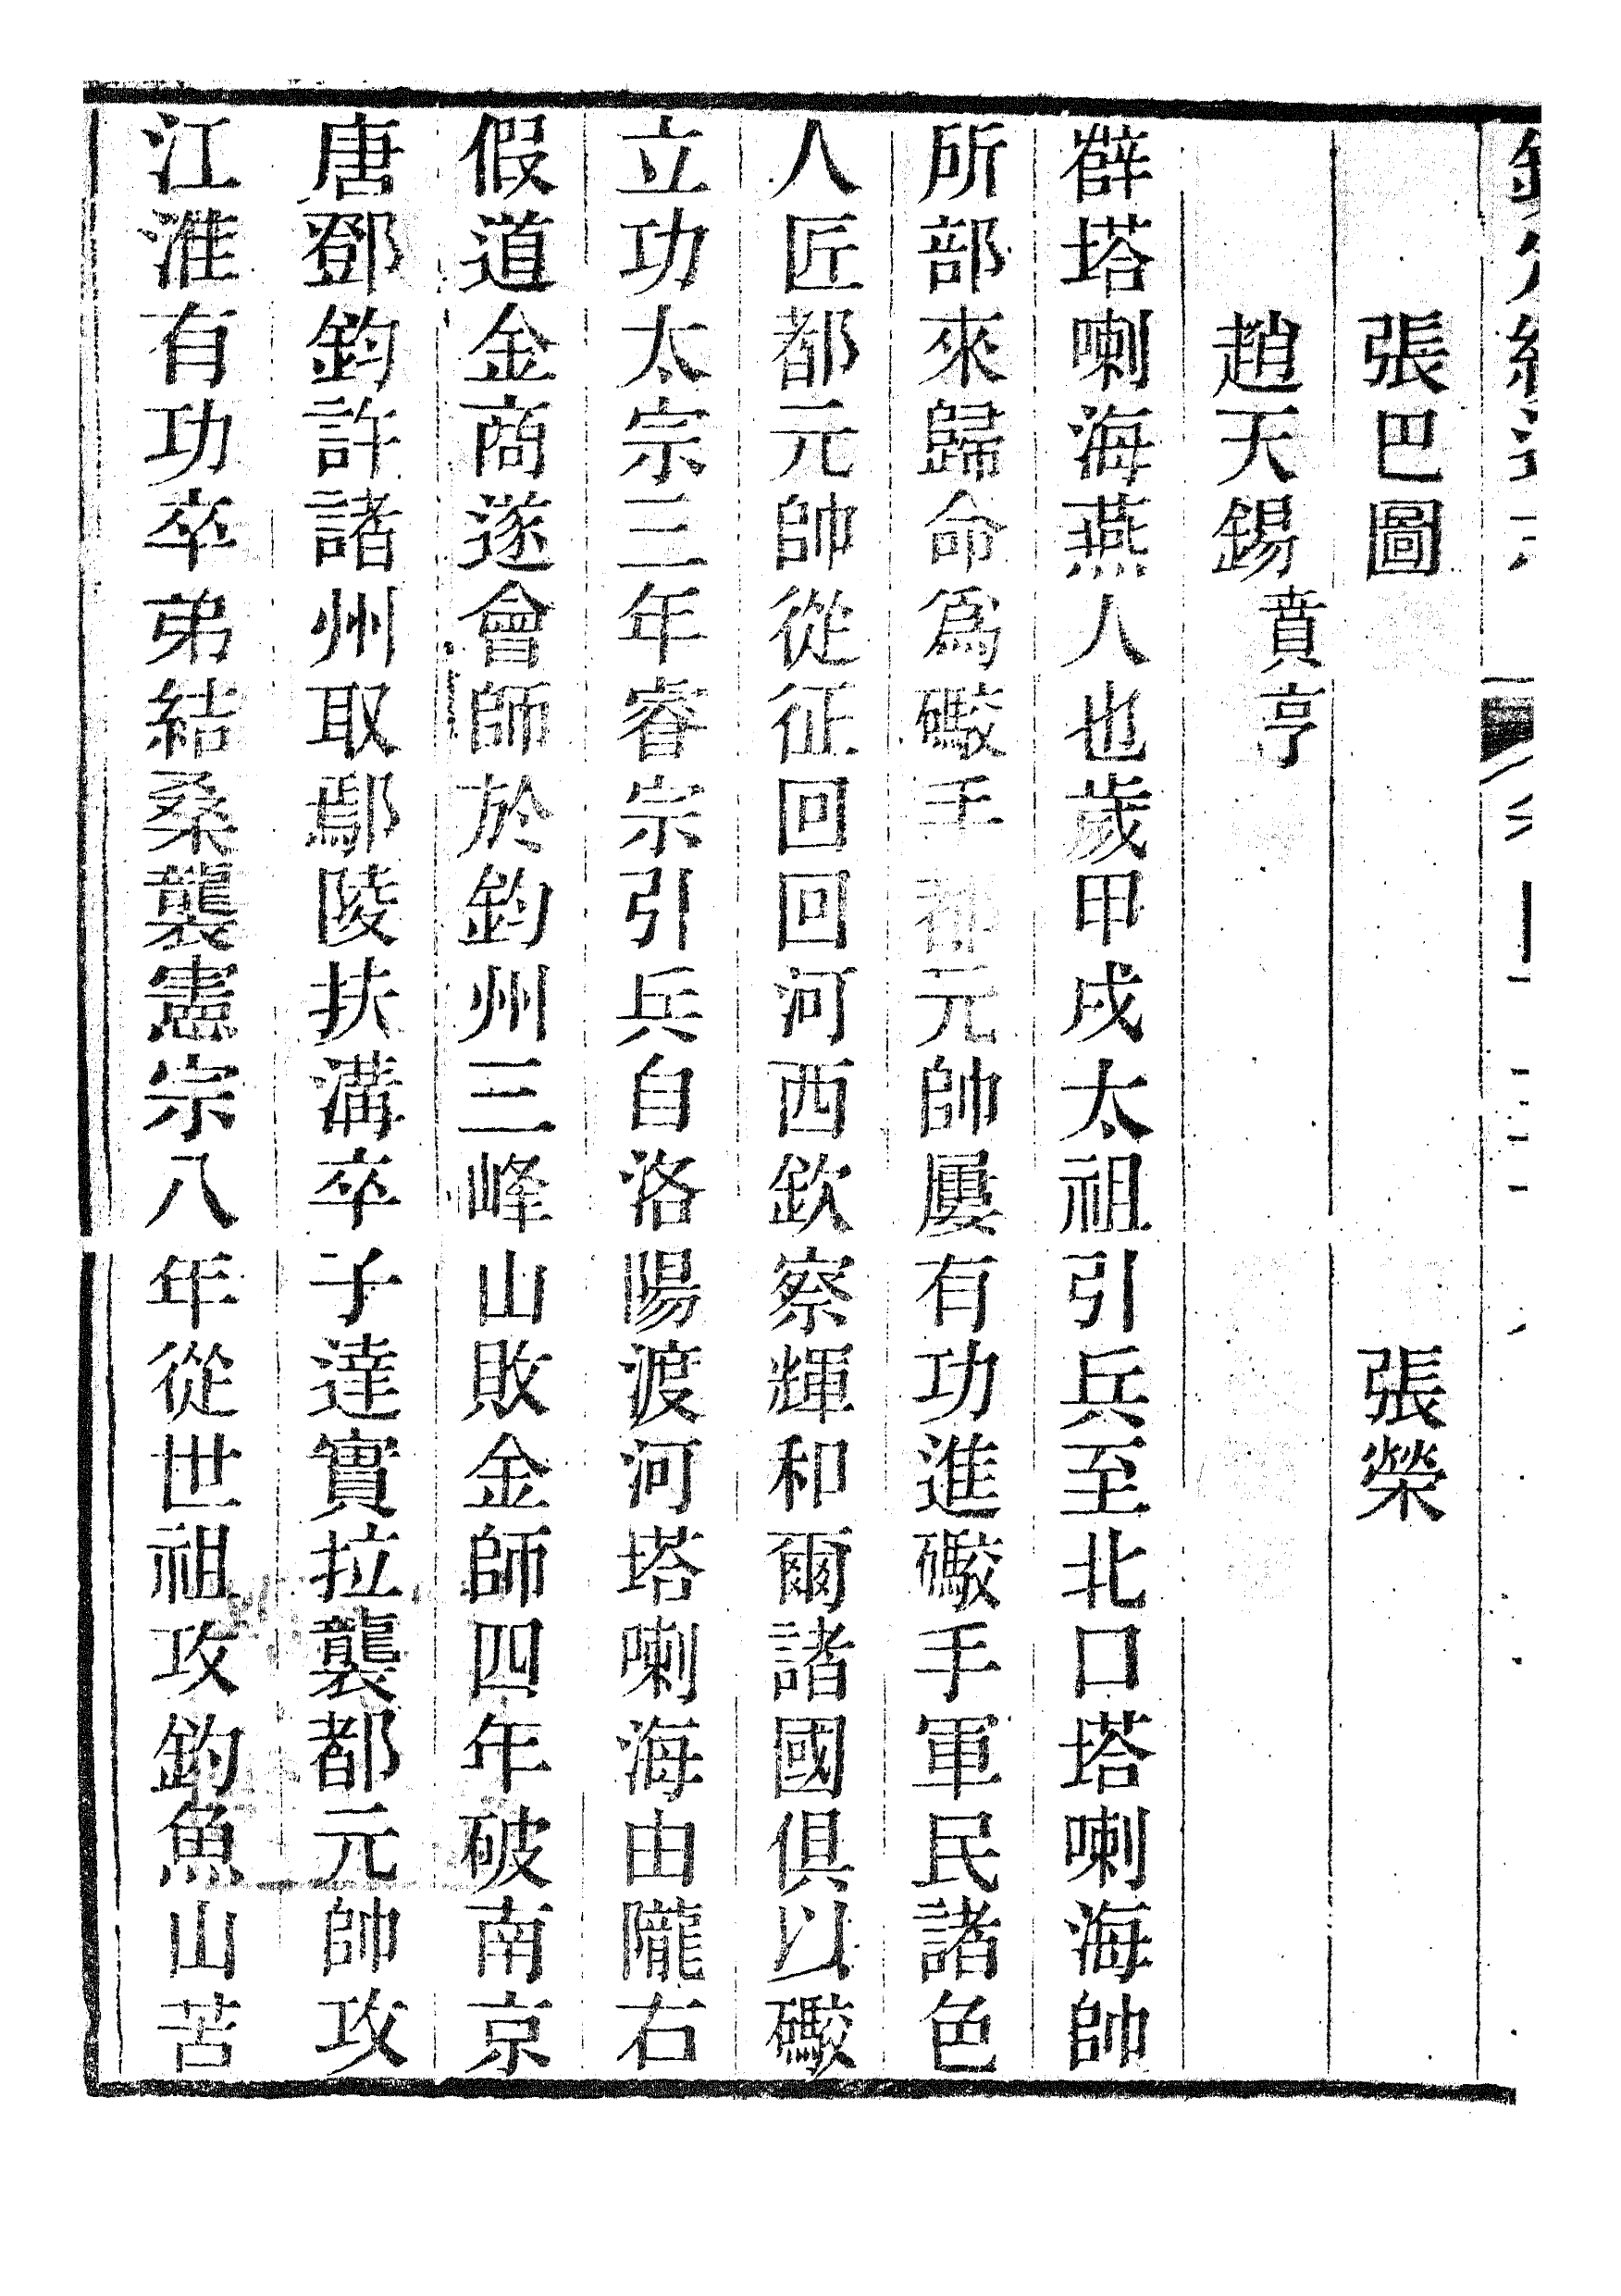 張巴圖　張榮
趙天錫賁亨
薛塔喇海燕人也歲甲戌太祖引兵至北口塔喇海帥
所部來歸命爲礮手都元帥屢有功進礮手軍民諸色
人匠都元帥從征回回河西欽察輝和爾諸國俱以礮
立功太宗三年睿宗引兵自洛陽渡河塔喇海由隴右
假道金商遂會師於鈞州三峰山敗金師四年破南京
唐鄧鈞許諸州取鄢陵扶溝卒子達實拉襲都元帥攻
江淮有功卒弟結桑襲憲宗八年從世祖攻釣魚山苦